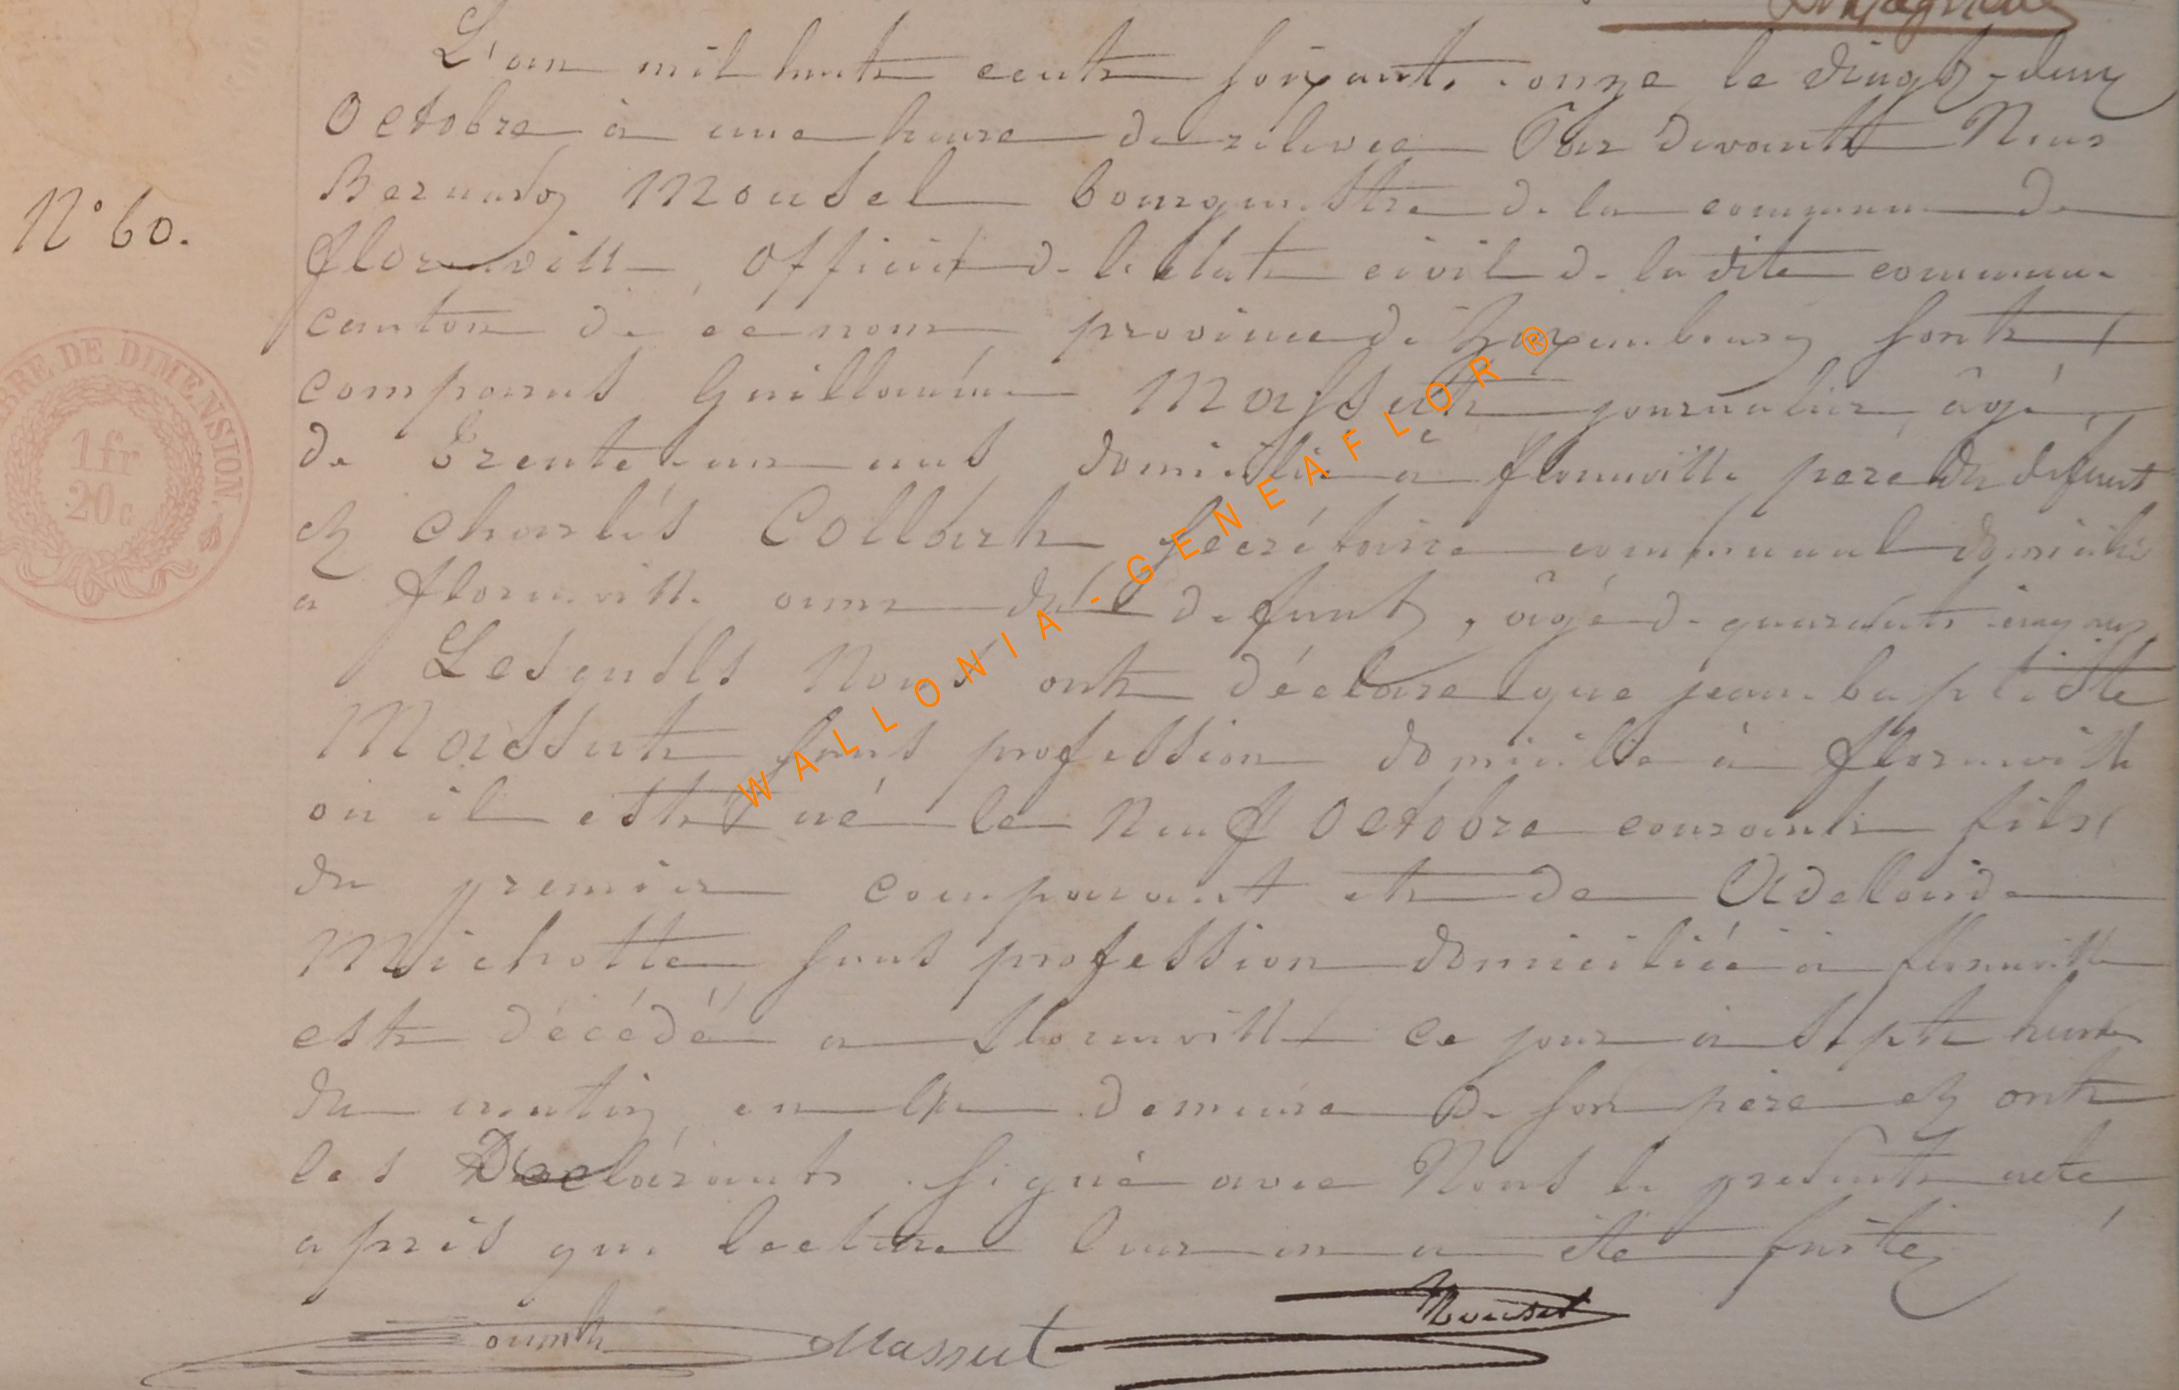 L'an mil huit cent soixante-onze le vingt-deux
Octobre à une heure de relevée Par devant Nous
Bernard Mousel bourgmestre de la commune de
N° 60.
florenville, officier de l'état civil de la dite commune
canton de ce nom province de Luxembourg sont
comparus Guillaume Massut journalier, âgé
de trente-un ans domicilié à florenville père du défunt
et Charlés Collart secrétaire communal domicilié
a florenville ami du défunt, âgé de quarante cinq ans
Lesquels Nous ont déclaré que jean-baptiste
Massut sans profession domicilié à florenville
où il est né le neuf Octobre courant fils
du premier comparant et de Adelaide
Michotte sans profession domiciliée à florenville
est décédé a florenville ce jour à sept heures
du matin en la demeure de son père et ont
les Déclarants signé avec Nous le présent acte
après que lecture leur en a été faite
Massut
Mousel
TIMBRE DE DIMENSION
1 fr
20 c
WALLONIA-GENEAFLOR ®